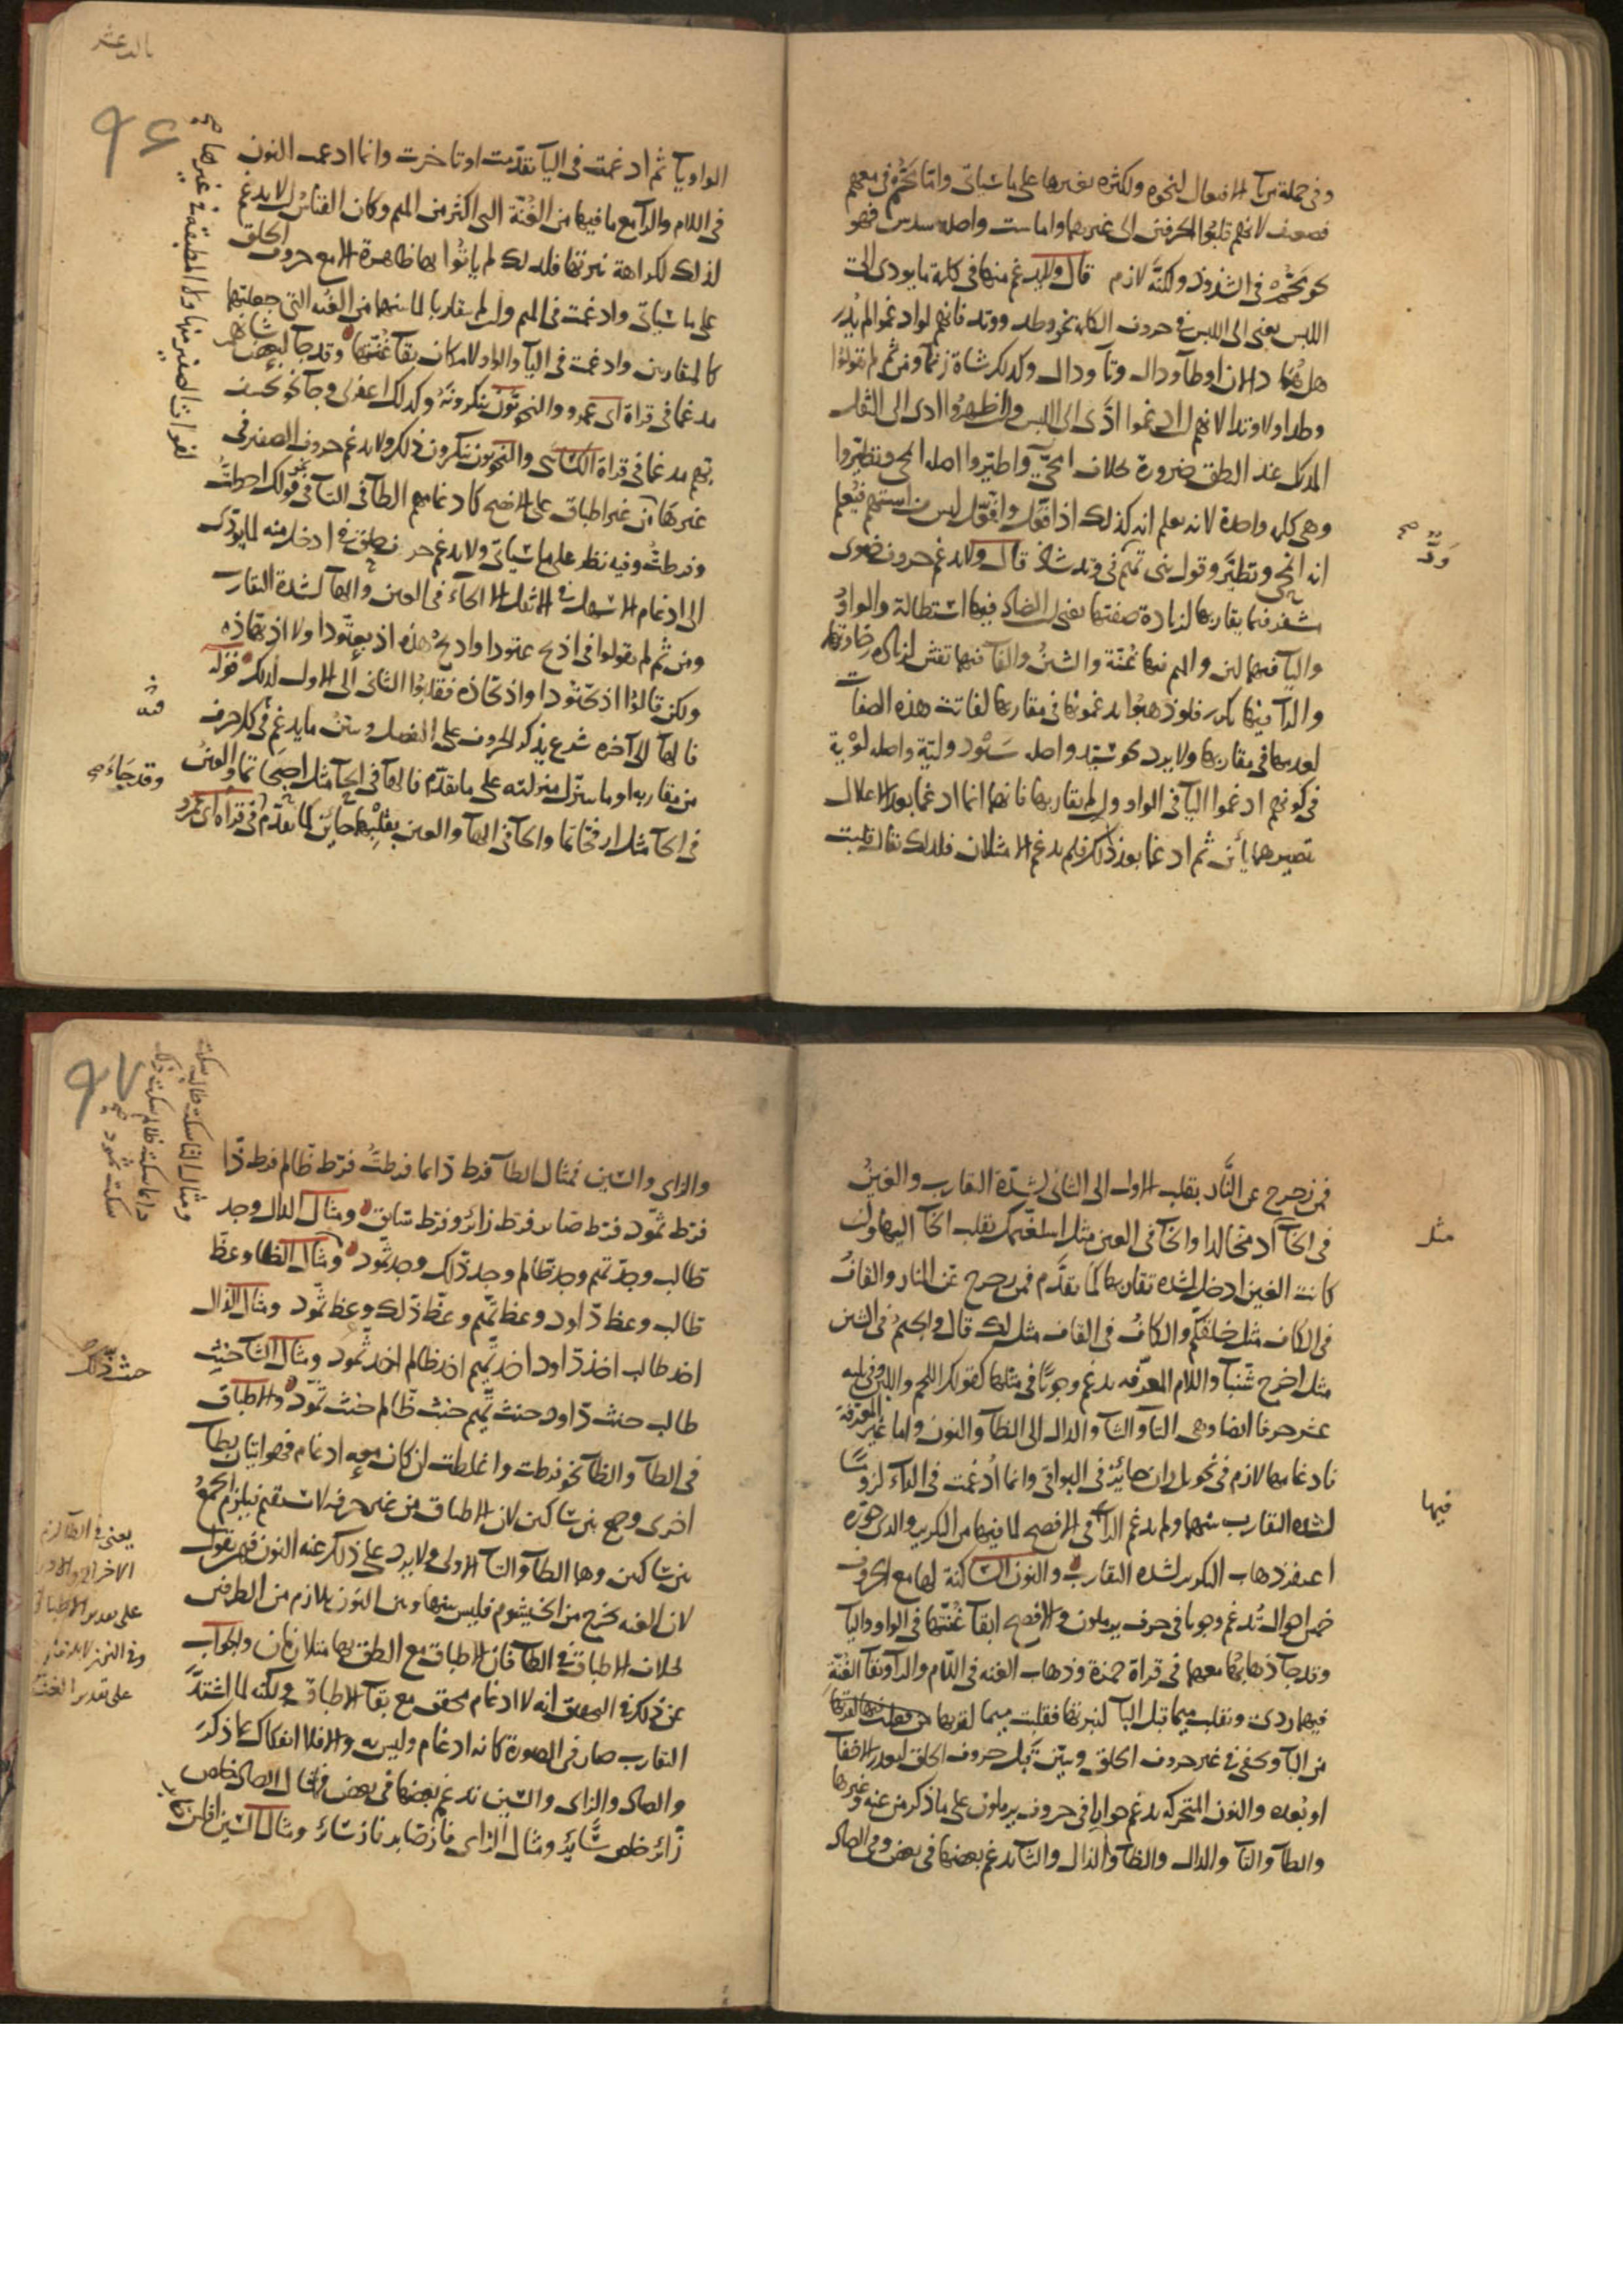 وفي جملة من باب الافتعال لنحوه ولكثرة تغييرها على ما سيأتي واما محّم في معهم
فضعيف لانهم قلبوا الحرفين الى غيرهما واما ست واصله سدس فهو
نحو محّم في الشذوذ ولكنه لازم قال ولا يدغم منها في كلمة ما يودي الى
اللبس يعني الى اللبس في حروف الكلمة نحو وطد ووتد فانهم لو ادغموا لم يدر
هل هما دالان او طاء ودال وتاء ودال وكذلك شاة زنماء ومن ثم لم يقولوا
وطدا ولا وتدا لانهم ان ادغموا ادى الى اللبس وان اظهروا ادى الى الثقل
المدرك عند النطق ضرورة بخلاف امّحى واطّيروا اصله انمحى وتطيروا
وهي كلمة واحدة لانه يعلم انه كذلك اذ افّعل وافّعّل ليس من ابنيتهم فيعلم
انه انمحى وتطيّر وقول بني تميم في وتد شاذ قال ولا يدغم حروف ضوى
مشفر فيما يقاربها لزيادة صفتها يعني ان الضاد فيها استطالة والواو
والياء فيهما لين والميم فيها غنة والشين والفاء فيهما تفش لزيادة رخاوتها
والراء فيها تكرير فلو ذهبوا يدغمونها في مقاربها لفاتت هذه الصفات
لعدمها في مقاربها ولا يرد نحو سيّد واصله سيود وليّة واصله لوية
في كونهم ادغموا الياء في الواو وان لم يقاربها فانهما انما ادغما بعد الاعلال
تصييرهما يائين ثم ادغما بعد ذلك فلم يدغم الا مثلان فلذلك يقال قلبت
ودّ صح
الواو ياء ثم ادغمت في الياء تقدمت او تاخرت وانما ادغمت النون
في اللام والراء مع ما فيها من الغنة التي اكثر من الميم وكان القياس ان لا يدغم
لذلك لكراهة نبرتها فلذلك لم ياتوا بها ظاهرة الا مع حروف الحلق
على ما سياتي وادغمت في الميم وان لم يتقاربا لما بينهما من الغنة التي جعلتهما
كالمتقاربين وادغمت في الياء والواو لامكان بقاء غنتها وقد جاء لبعض شانهم
مدغما في قراة ابي عمرو والنحويون ينكرونه وكذلك اغفر لي وجاء نخسف
بهم مدغما في قراة الكسائي والنحويون ينكرون ذلك ولا يدغم حروف الصفير في
غيرها من غير اطباق على الافصح كادغامهم الطاء في التاء في نحو قولك احطت
وفرطت وفيه نظر على ما سياتي ولا يدغم حرف حلق في ادخل منه لما يؤدي
الى ادغام الاسهل في الاثقل الا الحاء في العين والهاء لشدة التقارب
ومن ثم لم يقولوا في اذبح عتودا واذبح هذه اذبعتودا ولا اذبهاذه
ولكن قالوا اذبحتودا واذبحاذه فقلبوا الثاني الى الاول لذلك قوله
فالهاء الى آخره شرع يذكر الحروف على التفصيل ويبين ما يدغم في كل حرف
من مقاربه او ما يتنزل منزلته على ما تقدم فالهاء في الحاء مثل اجبحاتما والعين
في الحاء مثل ارفحاتما والحاء في الهاء والعين بقلبهما حائين كما تقدم في قراة ابي عمرو
لفوات الصفير منها ولا المطبقة في غيرها صح
وقد جاء صح
بالد عشر
٩٦
فمن زحزح عن النار بقلب الاول الى الثاني لشدة التقارب والغين
في الخاء ادمخّالدا والخاء في الغين مثل اسلغّنمك بقلب الخاء اليها وان
كانت الغين ادخل لشدة تقاربها كما تقدم فمن زحزح عن النار والقاف
في الكاف مثل خلقكم والكاف في القاف مثل لك قال والجيم في الشين
مثل اخرج شبثا واللام المعرفة يدغم وجوبا في مثلها كقولك اللحم واللبن وفي ثلثة
عشر حرفا ايضا وهي التاء والثاء والدال الى الظاء والنون واما غير المعرفة
فادغامها لازم في نحو بل ران جائز في البواقي وانما ادغمت في الراء لزوما
لشدة التقارب بينهما ولم يدغم الراء في الافصح لما فيها من التكرير والذي جوزه
اغتفر ذهاب التكرير لشدة التقارب والنون الساكنة لها مع الحروف
خمس احوال تدغم وجوبا في حرف يرملون والافصح ابقاء غنتها في الواو والياء
وقد جاء ذهابها معهما في قراة حمزة وذهاب الغنة في اللام والراء وبقاء الغنة
فيهما ردئ وتقلب ميما قبل الباء لنبرتها فقلبت ميما لقربها
من الباء وتخفى في غير حروف الحلق وتبيّن قبل حروف الحلق لبعد الاخفاء
او بُعده والنون المتحركة يدغم جوازا في حروف يرملون على ما ذكر من غنة وغيرها
والطاء والتاء والدال والظاء والذال والثاء يدغم بعضها في بعض وفي الصاد
مثل
فيها
والزاي والسين فمثال الطاء فرط دّاما فرطتّ فرط ظّالم فرط ذّا
فرط ثّمود فرط صّابر فرط زّائر وفرط سّابق ومثال الدال وجد
طّالب وجد تّميم وجد ظّالم وجد ذّلك وجد ثّمود ومثال الظاء وعظ
طّالب وعظ دّاود وعظ تّميم وعظ ذّلك وعظ ثّمود ومثال الذال
اخذ طالب اخذ دّاود اخذ تّميم اخذ ظالم اخذ ثّمود ومثال الثاء خبث
طالب خبث دّاود خبث تّميم خبث ظّالم خبث ثّمود والاطباق
في الطاء والظاء نحو فرطت واغلظت ان كان معه ادغام فهو اتيان بطاء
اخرى وجمع بين ساكنين لان الاطباق من غير حرفه لا يستقيم فيلزم الجمع
بين ساكنين وهما الطاء والتاء الاولى ولا يرد على ذلك غنة النون في من يقول
لان الغنة تخرج من الخيشوم فليس بينها وبين النون تلازم من الطرفين
بخلاف الاطباق في الطاء فان الاطباق مع النطق بها متلازمان والجواب
عن ذلك في التحقيق انه لا ادغام محقق مع بقاء الاطباق ولكنه لما اشتد
التقارب صار في الصورة كانه ادغام وليس به والا فلا انفكاك عما ذكر
والصاد والزاي والسين تدغم بعضها في بعض فمثال الصاد خلص
زّائر خلص سّائر ومثال الزاي فاز صّابر فاز سّائر ومثال السين افلس
ومثال التاء سكت طالب سكت
داما سكت ظالم سكت ذلك
سكت ثمود صح
خبث ذّلك صح
يعني في الطاء لزم
على تقدير الاطباق
على تقدير الغنة
٩٧